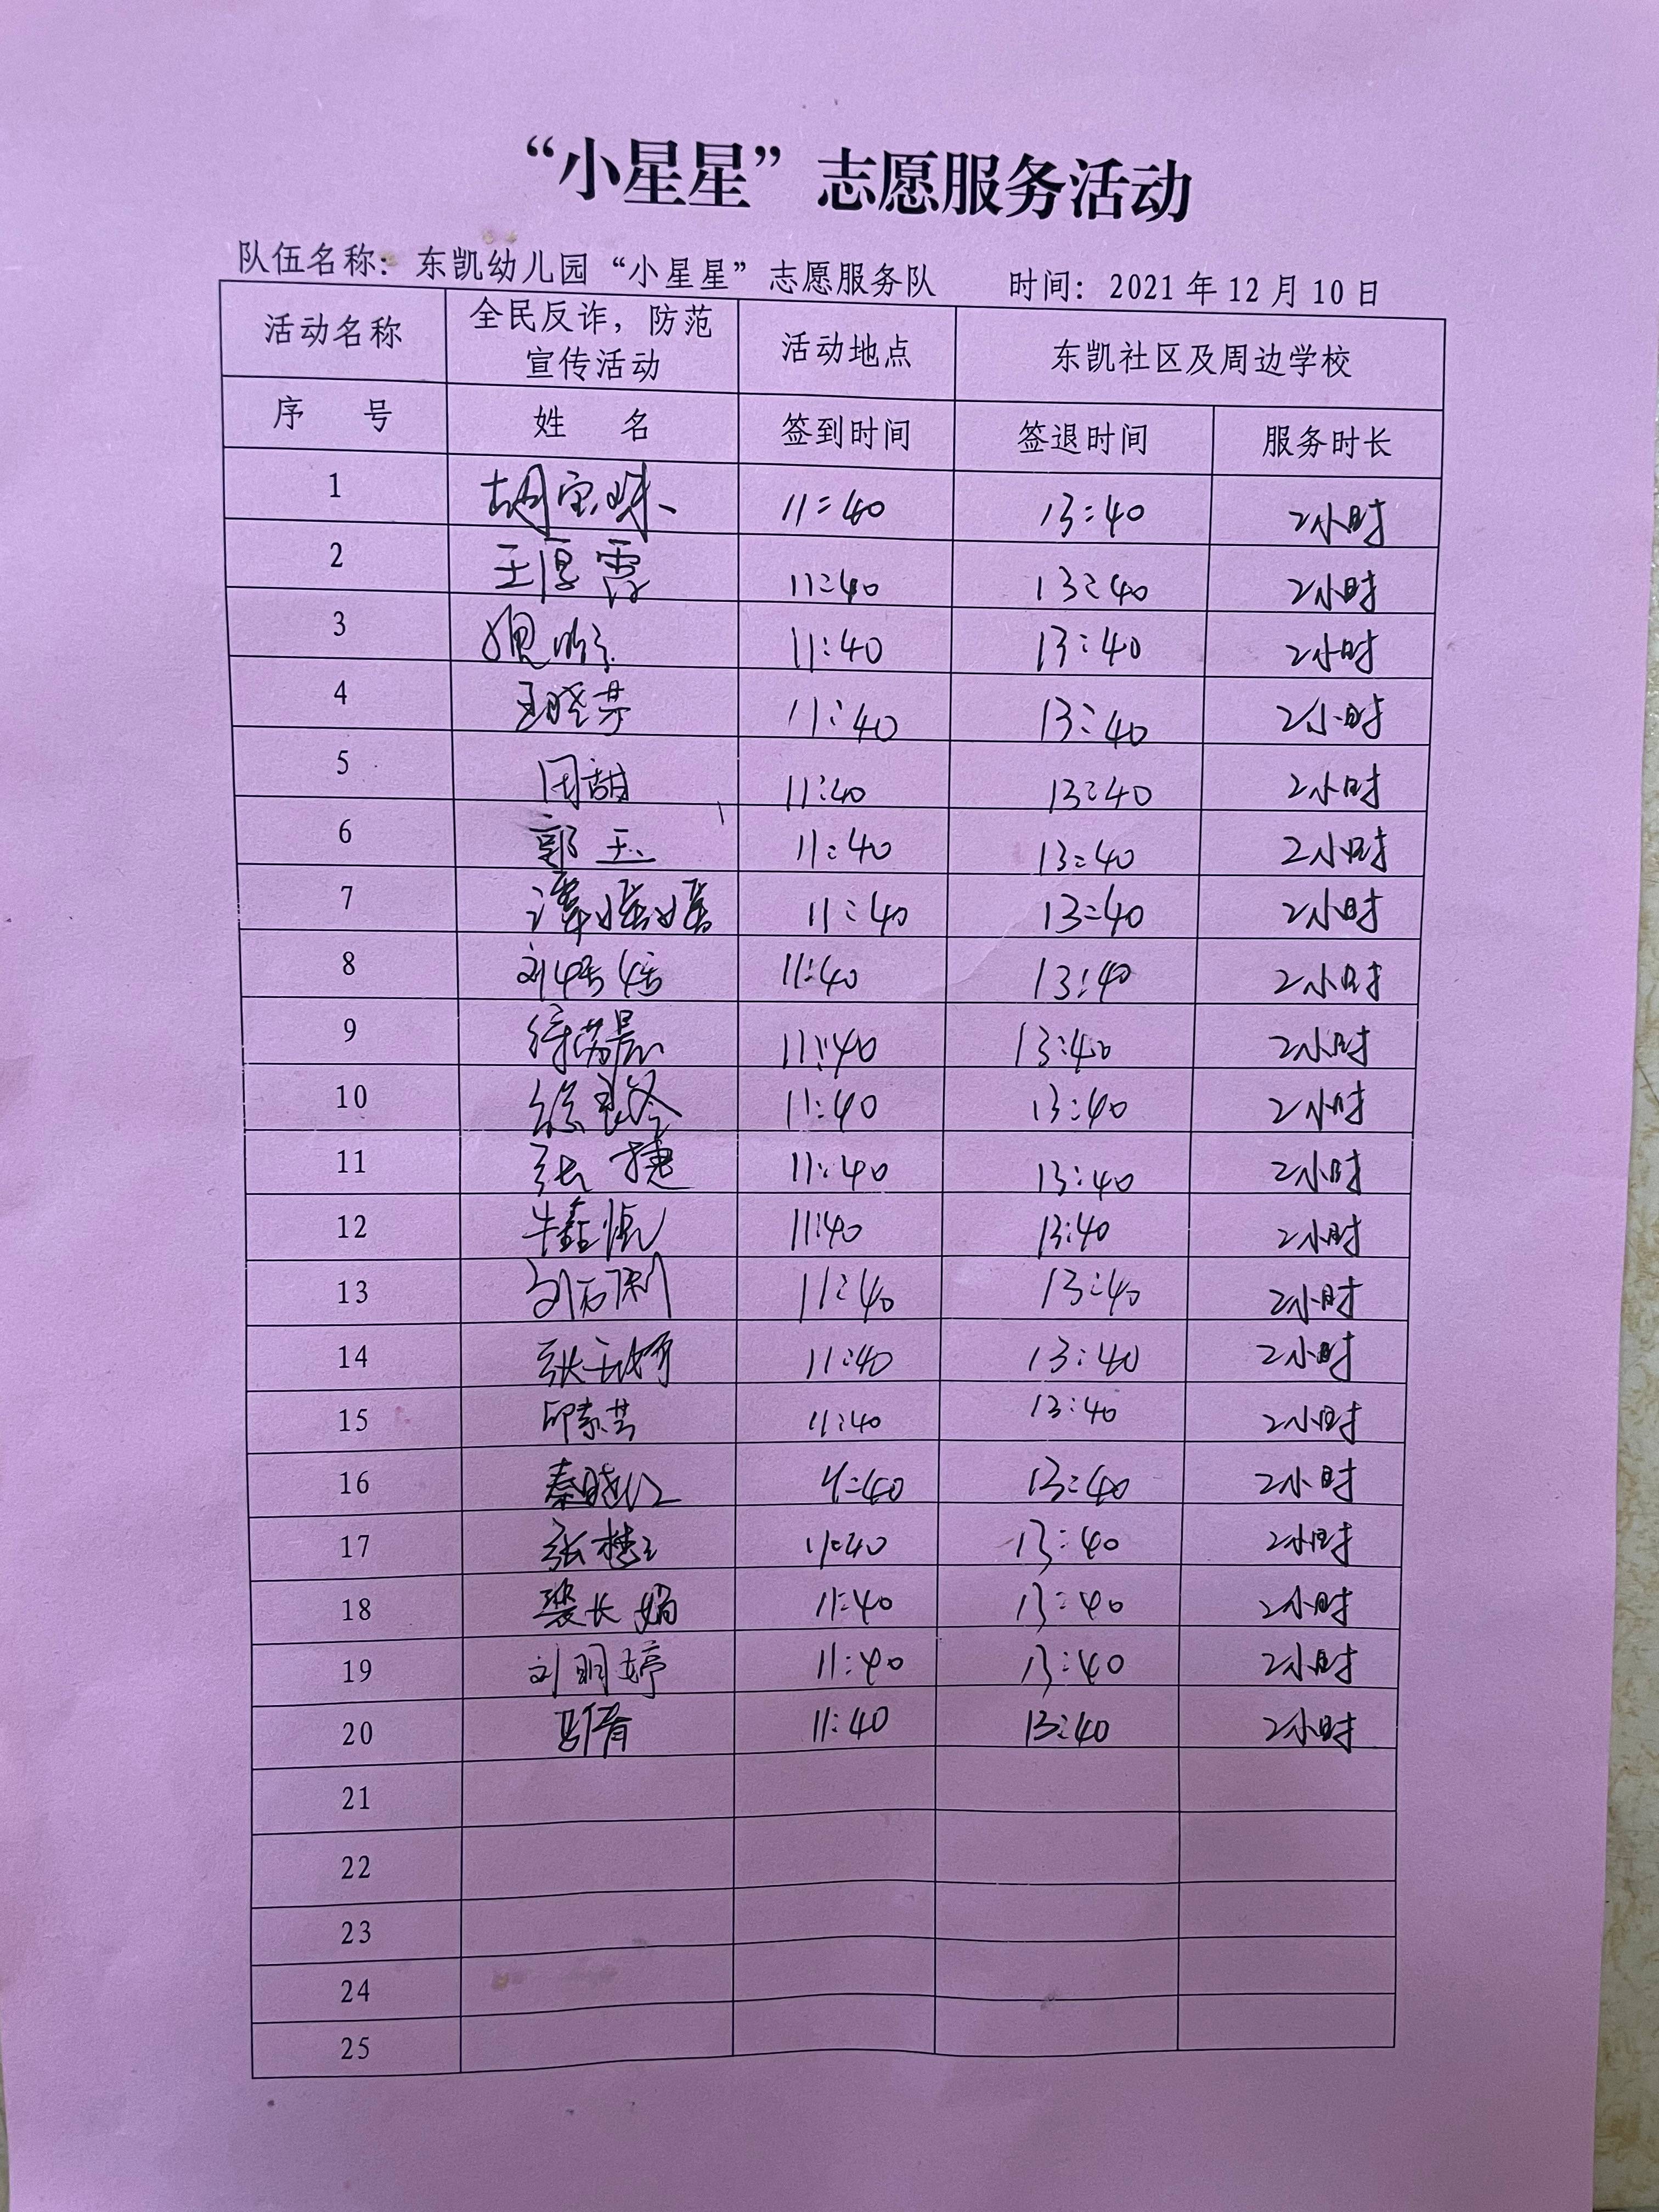 “小星星”志愿服务活动
队伍名称：东凯幼儿园“小星星”志愿服务队 时间：2021年12月10日
活动名称 全民反诈，防范宣传活动 活动地点 东凯社区及周边学校
序 号 姓 名 签到时间 签退时间 服务时长
1 胡宝珠 11:40 13:40 2小时
2 王厚霞 11:40 13:40 2小时
3 11:40 13:40 2小时
4 王晓芬 11:40 13:40 2小时
5 闫甜 11:40 13:40 2小时
6 郭玉 11:40 13:40 2小时
7 谭媛媛 11:40 13:40 2小时
8 刘倩倩 11:40 13:40 2小时
9 11:40 13:40 2小时
10 11:40 13:40 2小时
11 张捷 11:40 13:40 2小时
12 11:40 13:40 2小时
13 11:40 13:40 2小时
14 张玉娇 11:40 13:40 2小时
15 邱素芸 11:40 13:40 2小时
16 秦晓红 11:40 13:40 2小时
17 11:40 13:40 2小时
18 裴长娟 11:40 13:40 2小时
19 刘明婷 11:40 13:40 2小时
20 马倩 11:40 13:40 2小时
21
22
23
24
25